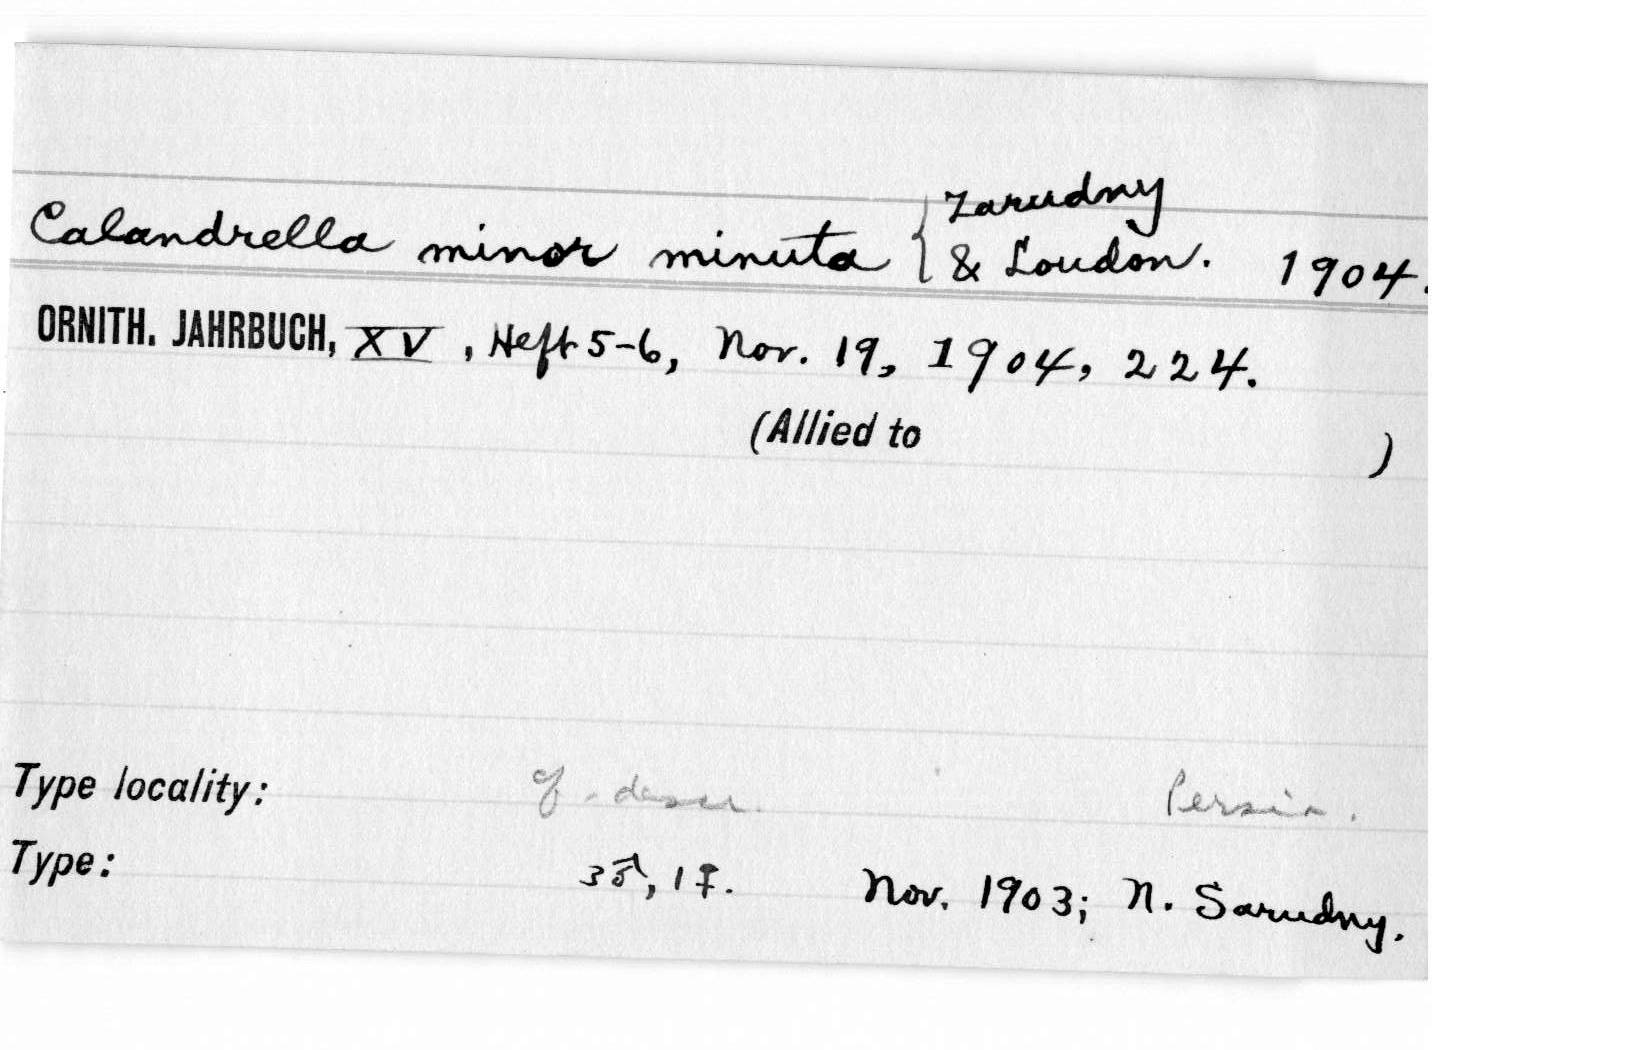 Calandrella minor minuta { Zarudny
& Loudon. 1904.
ORNITH. JAHRBUCH, XV, Heft 5-6, Nov. 19, 1904, 224.
(Allied to )
Type locality: Persia.
Type: 3♂, 1♀. Nov. 1903; N. Sarudny.